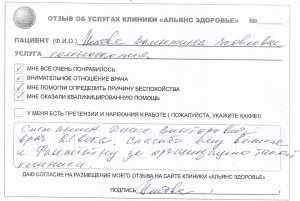 ОТЗЫВ ОБ УСЛУГАХ КЛИНИКИ «АЛЬЯНС ЗДОРОВЬЕ» №
ПАЦИЕНТ (Ф.И.О.) Валентина
УСЛУГА
МНЕ ВСЕ ОЧЕНЬ ПОНРАВИЛОСЬ
ВНИМАТЕЛЬНОЕ ОТНОШЕНИЕ ВРАЧА
МНЕ ПОМОГЛИ ОПРЕДЕЛИТЬ ПРИЧИНУ БЕСПОКОЙСТВА
МНЕ ОКАЗАЛИ КВАЛИФИЦИРОВАННУЮ ПОМОЩЬ
У МЕНЯ ЕСТЬ ПРЕТЕНЗИИ И НАРЕКАНИЯ К РАБОТЕ ( ПОЖАЛУЙСТА, УКАЖИТЕ КАКИЕ!)
Викторович
врач от бога. Спасибо ему
за организацию такой
клиники.
ДАЮ СОГЛАСИЕ НА РАЗМЕЩЕНИЕ МОЕГО ОТЗЫВА НА САЙТЕ КЛИНИКИ «АЛЬЯНС ЗДОРОВЬЕ»
ПОДПИСЬ